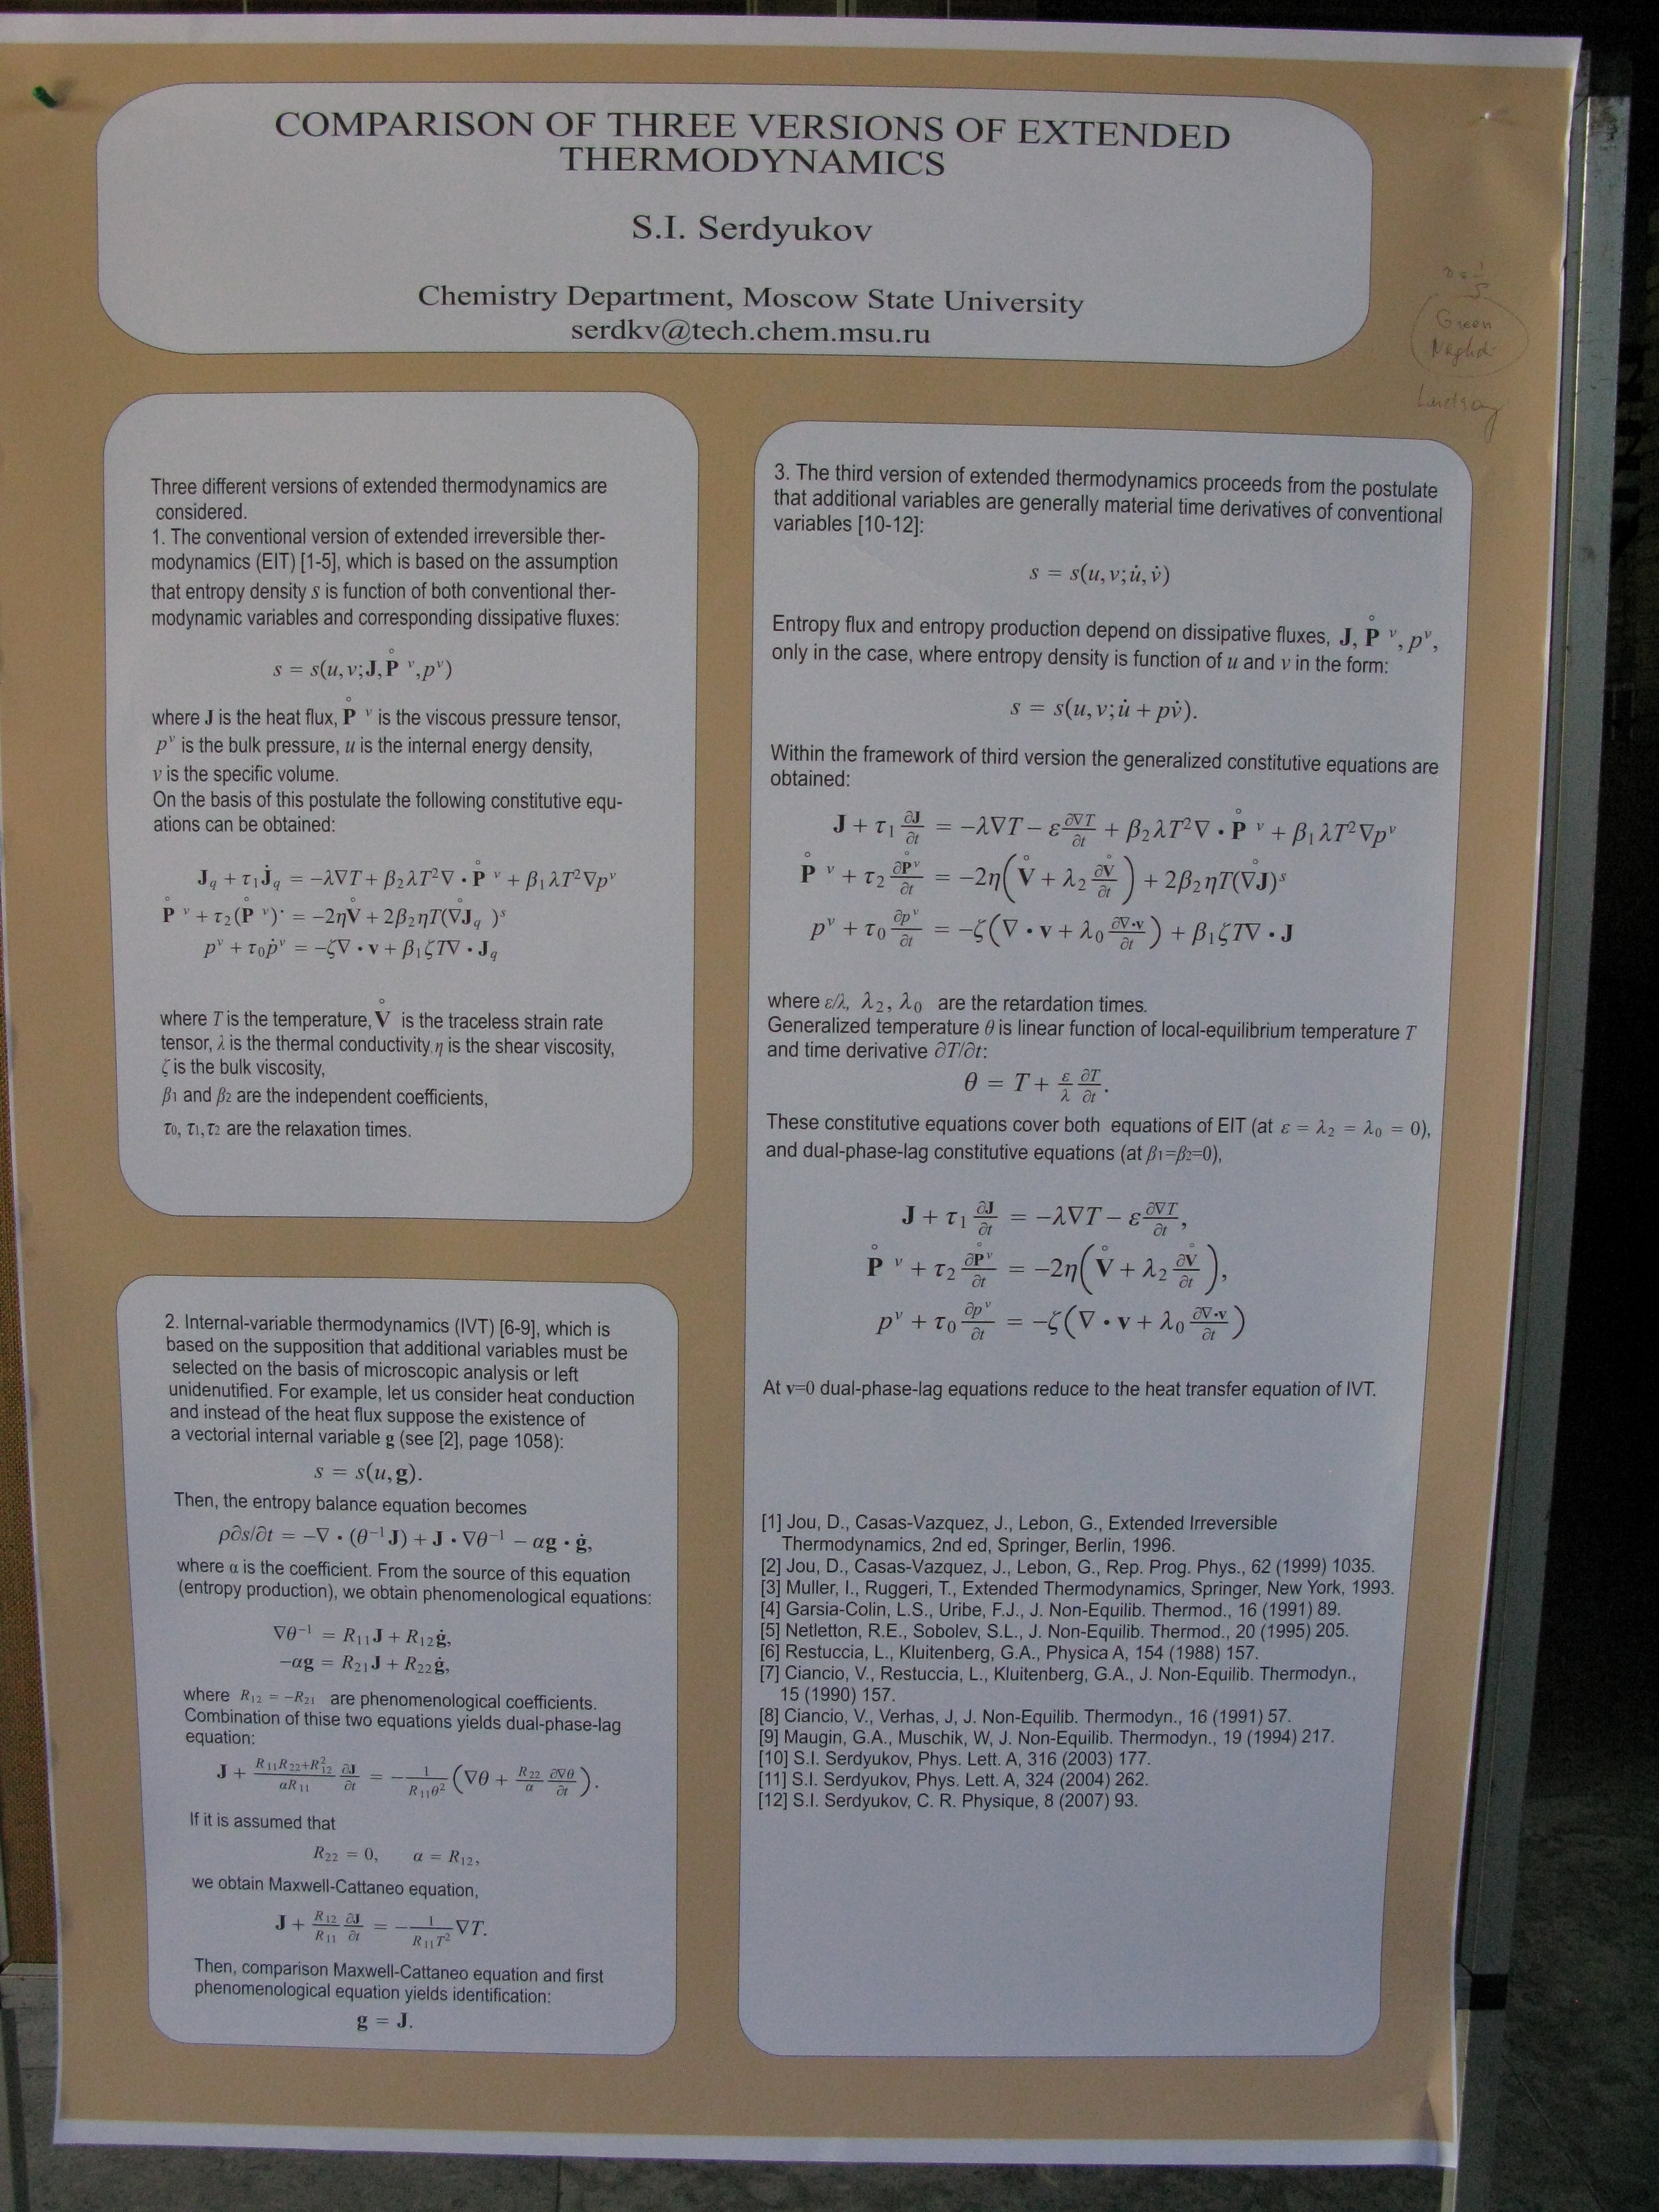 COMPARISON OF THREE VERSIONS OF EXTENDED
THERMODYNAMICS
S.I. Serdyukov
Chemistry Department, Moscow State University
serdkv@tech.chem.msu.ru
Green
Naghdi
Lindsay
Three different versions of extended thermodynamics are
considered.
1. The conventional version of extended irreversible ther-
modynamics (EIT) [1-5], which is based on the assumption
that entropy density s is function of both conventional ther-
modynamic variables and corresponding dissipative fluxes:
s = s(u,v;J,P̊ ᵛ,pᵛ)
where J is the heat flux, P̊ ᵛ is the viscous pressure tensor,
pᵛ is the bulk pressure, u is the internal energy density,
v is the specific volume.
On the basis of this postulate the following constitutive equ-
ations can be obtained:
J_q + τ₁J̇_q = −λ∇T + β₂λT²∇ • P̊ ᵛ + β₁λT²∇pᵛ
P̊ ᵛ + τ₂(P̊ ᵛ)˙ = −2ηV̊ + 2β₂ηT(∇̊J_q )ˢ
pᵛ + τ₀ṗᵛ = −ζ∇ • v + β₁ζT∇ • J_q
where T is the temperature, V̊ is the traceless strain rate
tensor, λ is the thermal conductivity, η is the shear viscosity,
ζ is the bulk viscosity,
β₁ and β₂ are the independent coefficients,
τ₀, τ₁,τ₂ are the relaxation times.
2. Internal-variable thermodynamics (IVT) [6-9], which is
based on the supposition that additional variables must be
selected on the basis of microscopic analysis or left
unidenutified. For example, let us consider heat conduction
and instead of the heat flux suppose the existence of
a vectorial internal variable g (see [2], page 1058):
s = s(u,g).
Then, the entropy balance equation becomes
ρ∂s/∂t = −∇ • (θ⁻¹J) + J • ∇θ⁻¹ − αg • ġ,
where α is the coefficient. From the source of this equation
(entropy production), we obtain phenomenological equations:
∇θ⁻¹ = R₁₁J + R₁₂ġ,
−αg = R₂₁J + R₂₂ġ,
where R₁₂ = −R₂₁ are phenomenological coefficients.
Combination of thise two equations yields dual-phase-lag
equation:
J + (R₁₁R₂₂+R²₁₂)/(αR₁₁) ∂J/∂t = − 1/(R₁₁θ²) (∇θ + R₂₂/α ∂∇θ/∂t).
If it is assumed that
R₂₂ = 0, α = R₁₂,
we obtain Maxwell-Cattaneo equation,
J + R₁₂/R₁₁ ∂J/∂t = − 1/(R₁₁T²) ∇T.
Then, comparison Maxwell-Cattaneo equation and first
phenomenological equation yields identification:
g = J.
3. The third version of extended thermodynamics proceeds from the postulate
that additional variables are generally material time derivatives of conventional
variables [10-12]:
s = s(u,v;u̇,v̇)
Entropy flux and entropy production depend on dissipative fluxes, J, P̊ ᵛ, pᵛ,
only in the case, where entropy density is function of u and v in the form:
s = s(u,v;u̇ + pv̇).
Within the framework of third version the generalized constitutive equations are
obtained:
J + τ₁ ∂J/∂t = −λ∇T − ε ∂∇T/∂t + β₂λT²∇ • P̊ ᵛ + β₁λT²∇pᵛ
P̊ ᵛ + τ₂ ∂P̊ᵛ/∂t = −2η(V̊ + λ₂ ∂V̊/∂t) + 2β₂ηT(∇̊J)ˢ
pᵛ + τ₀ ∂pᵛ/∂t = −ζ(∇ • v + λ₀ ∂∇•v/∂t) + β₁ζT∇ • J
where ε/λ, λ₂, λ₀ are the retardation times.
Generalized temperature θ is linear function of local-equilibrium temperature T
and time derivative ∂T/∂t:
θ = T + ε/λ ∂T/∂t.
These constitutive equations cover both equations of EIT (at ε = λ₂ = λ₀ = 0),
and dual-phase-lag constitutive equations (at β₁=β₂=0),
J + τ₁ ∂J/∂t = −λ∇T − ε ∂∇T/∂t,
P̊ ᵛ + τ₂ ∂P̊ᵛ/∂t = −2η(V̊ + λ₂ ∂V̊/∂t),
pᵛ + τ₀ ∂pᵛ/∂t = −ζ(∇ • v + λ₀ ∂∇•v/∂t)
At v=0 dual-phase-lag equations reduce to the heat transfer equation of IVT.
[1] Jou, D., Casas-Vazquez, J., Lebon, G., Extended Irreversible
Thermodynamics, 2nd ed, Springer, Berlin, 1996.
[2] Jou, D., Casas-Vazquez, J., Lebon, G., Rep. Prog. Phys., 62 (1999) 1035.
[3] Muller, I., Ruggeri, T., Extended Thermodynamics, Springer, New York, 1993.
[4] Garsia-Colin, L.S., Uribe, F.J., J. Non-Equilib. Thermod., 16 (1991) 89.
[5] Netletton, R.E., Sobolev, S.L., J. Non-Equilib. Thermod., 20 (1995) 205.
[6] Restuccia, L., Kluitenberg, G.A., Physica A, 154 (1988) 157.
[7] Ciancio, V., Restuccia, L., Kluitenberg, G.A., J. Non-Equilib. Thermodyn.,
15 (1990) 157.
[8] Ciancio, V., Verhas, J, J. Non-Equilib. Thermodyn., 16 (1991) 57.
[9] Maugin, G.A., Muschik, W, J. Non-Equilib. Thermodyn., 19 (1994) 217.
[10] S.I. Serdyukov, Phys. Lett. A, 316 (2003) 177.
[11] S.I. Serdyukov, Phys. Lett. A, 324 (2004) 262.
[12] S.I. Serdyukov, C. R. Physique, 8 (2007) 93.